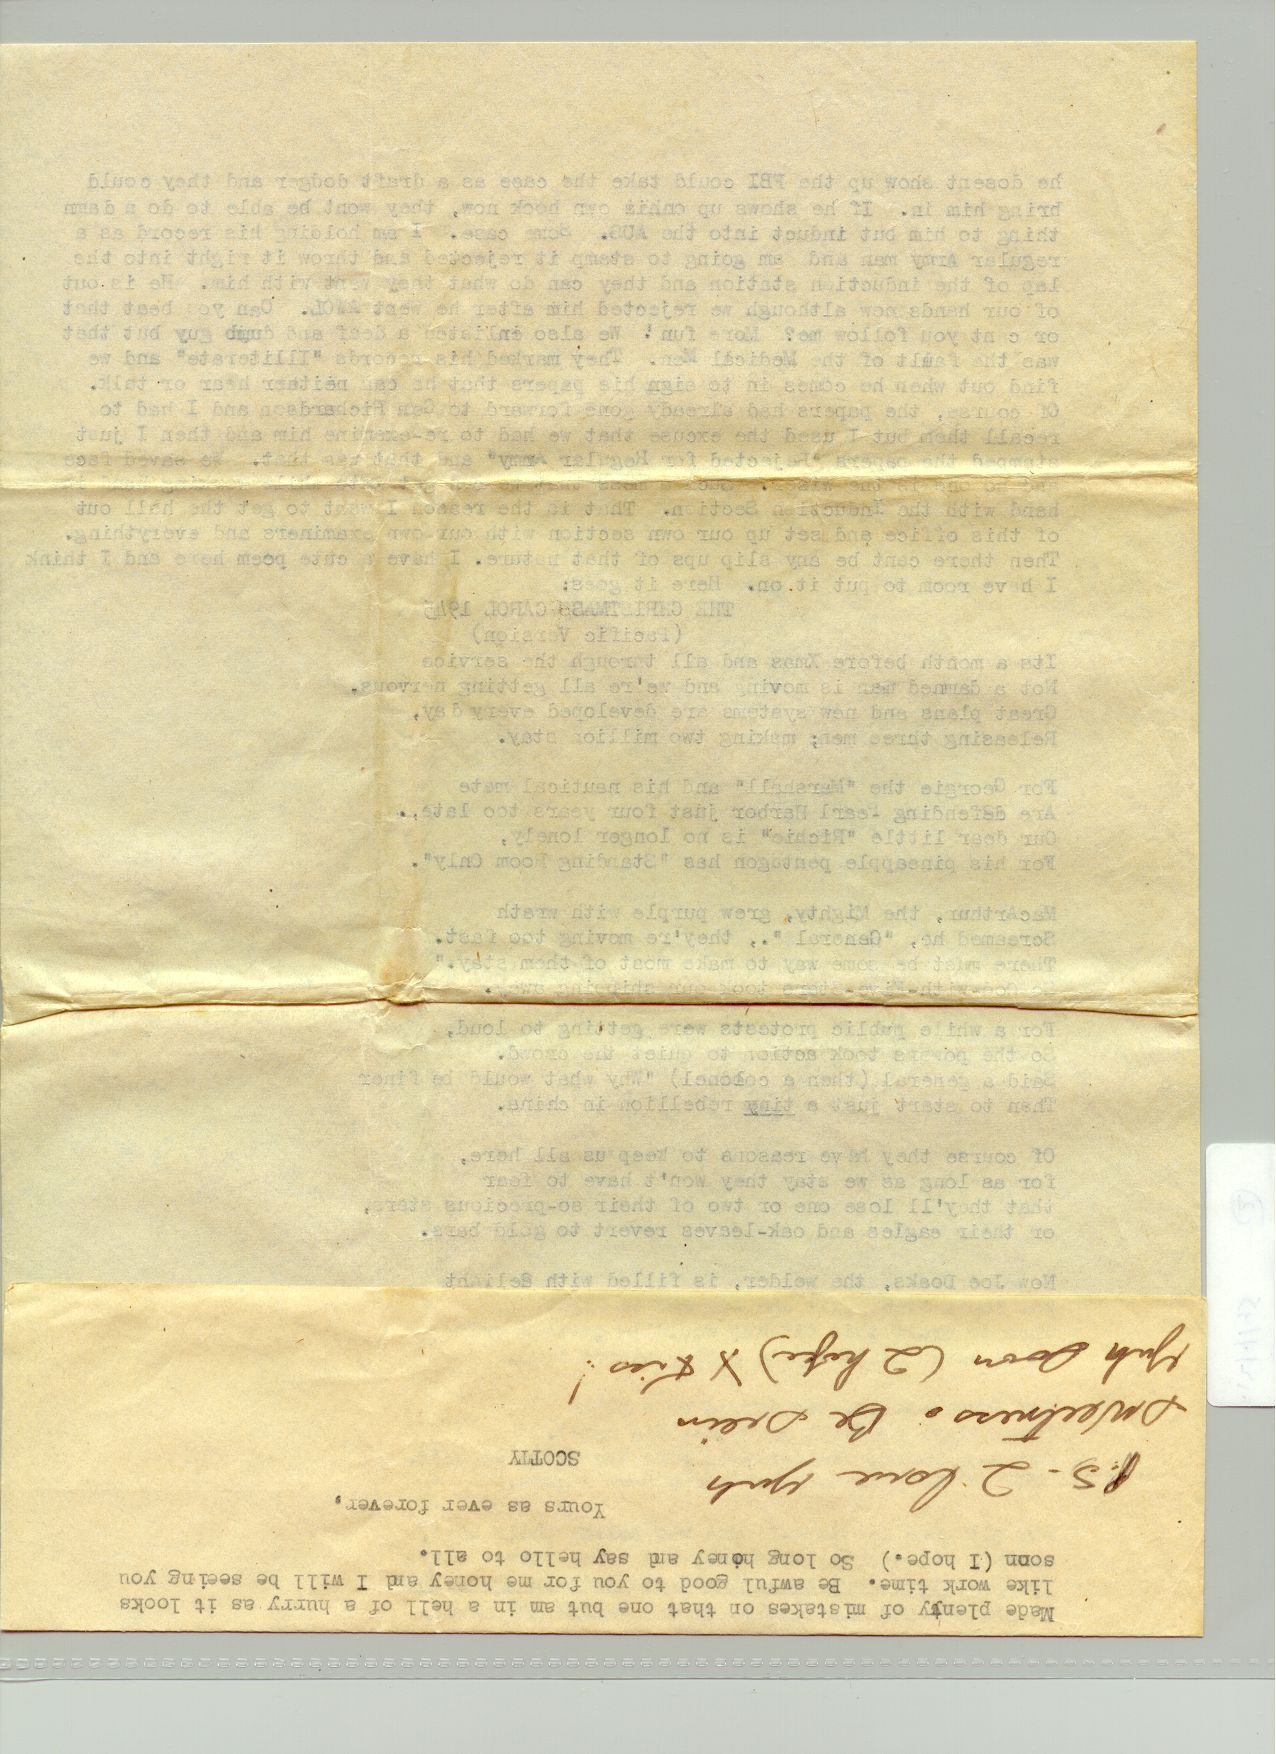 he dosent show up the FBI could take the case as a draft dodger and they could
bring him in. If he shows up onhis own hook now, they wont be able to do a damn
thing to him but induct into the AUS. Some case. I am holding his record as a
regular Army man and am going to stamp it rejected and throw it right into the
lap of the induction station and they can do what they want with him. He is out
of our hands now although we rejected him after he went AWOL. Can you beat that
or cant you follow me? More fun! We also enlisted a deaf and dumb guy but that
was the fault of the Medical Men. They marked his records "Illiterate" and we
find out when he comes in to sign his papers that he can neither hear or talk.
Of course, the papers had already gone forward to Gen Richardson and I had to
recall them but I used the excuse that we had to re-examine him and then I just
stamped the papers "Rejected for Regular Army" and that was that. We saved face
hand with the Induction Section. That is the reason I want to get the hall out
of this office and set up our own section with our own examiners and everything.
Then there cant be any slip ups of that nature. I have a cute poem here and I think
I have room to put it on. Here it goes:
THE CHRISTMAS CAROL 1945
(Pacific Version)
Its a month before Xmas and all through the service
Not a damned man is moving and we're all getting nervous.
Great plans and new systems are developed every day,
Releasing three men; making two million stay.
For Georgie the "Marshall" and his nautical mate
Are defending Pearl Harbor just four years too late,.
Our dear little "Richie" is no longer lonely,
For his pineapple pentagon has "Standing Room Only".
MacArthur, the Mighty, grew purple with wrath
Screamed he, "General"., they're moving too fast.
There must be some way to make most of them stay."
God-with-Five-Stars took our shipping away.
For a while public protests were getting to loud,
So the powers took action to quiet the crowd.
Said a general (then a colonel) "Why what would be finer
Than to start just a tiny rebellion in china.
Of course they have reasons to keep us all here,
for as long as we stay they won't have to fear
that they'll lose one or two of their so-precious stars,
or their eagles and oak-leaves revert to gold bars.
Now Joe Doaks, the welder, is filled with delight
Made plenty of mistakes on that one but am in a hell of a hurry as it looks
like work time. Be awful good to you for me honey and I will be seeing you
soon (I hope.) So long honey and say hello to all.
Yours as ever forever,
SCOTTY
P.S. - I love yuh
sweetness. Be seein
yuh soon (I hope) X Kiss!